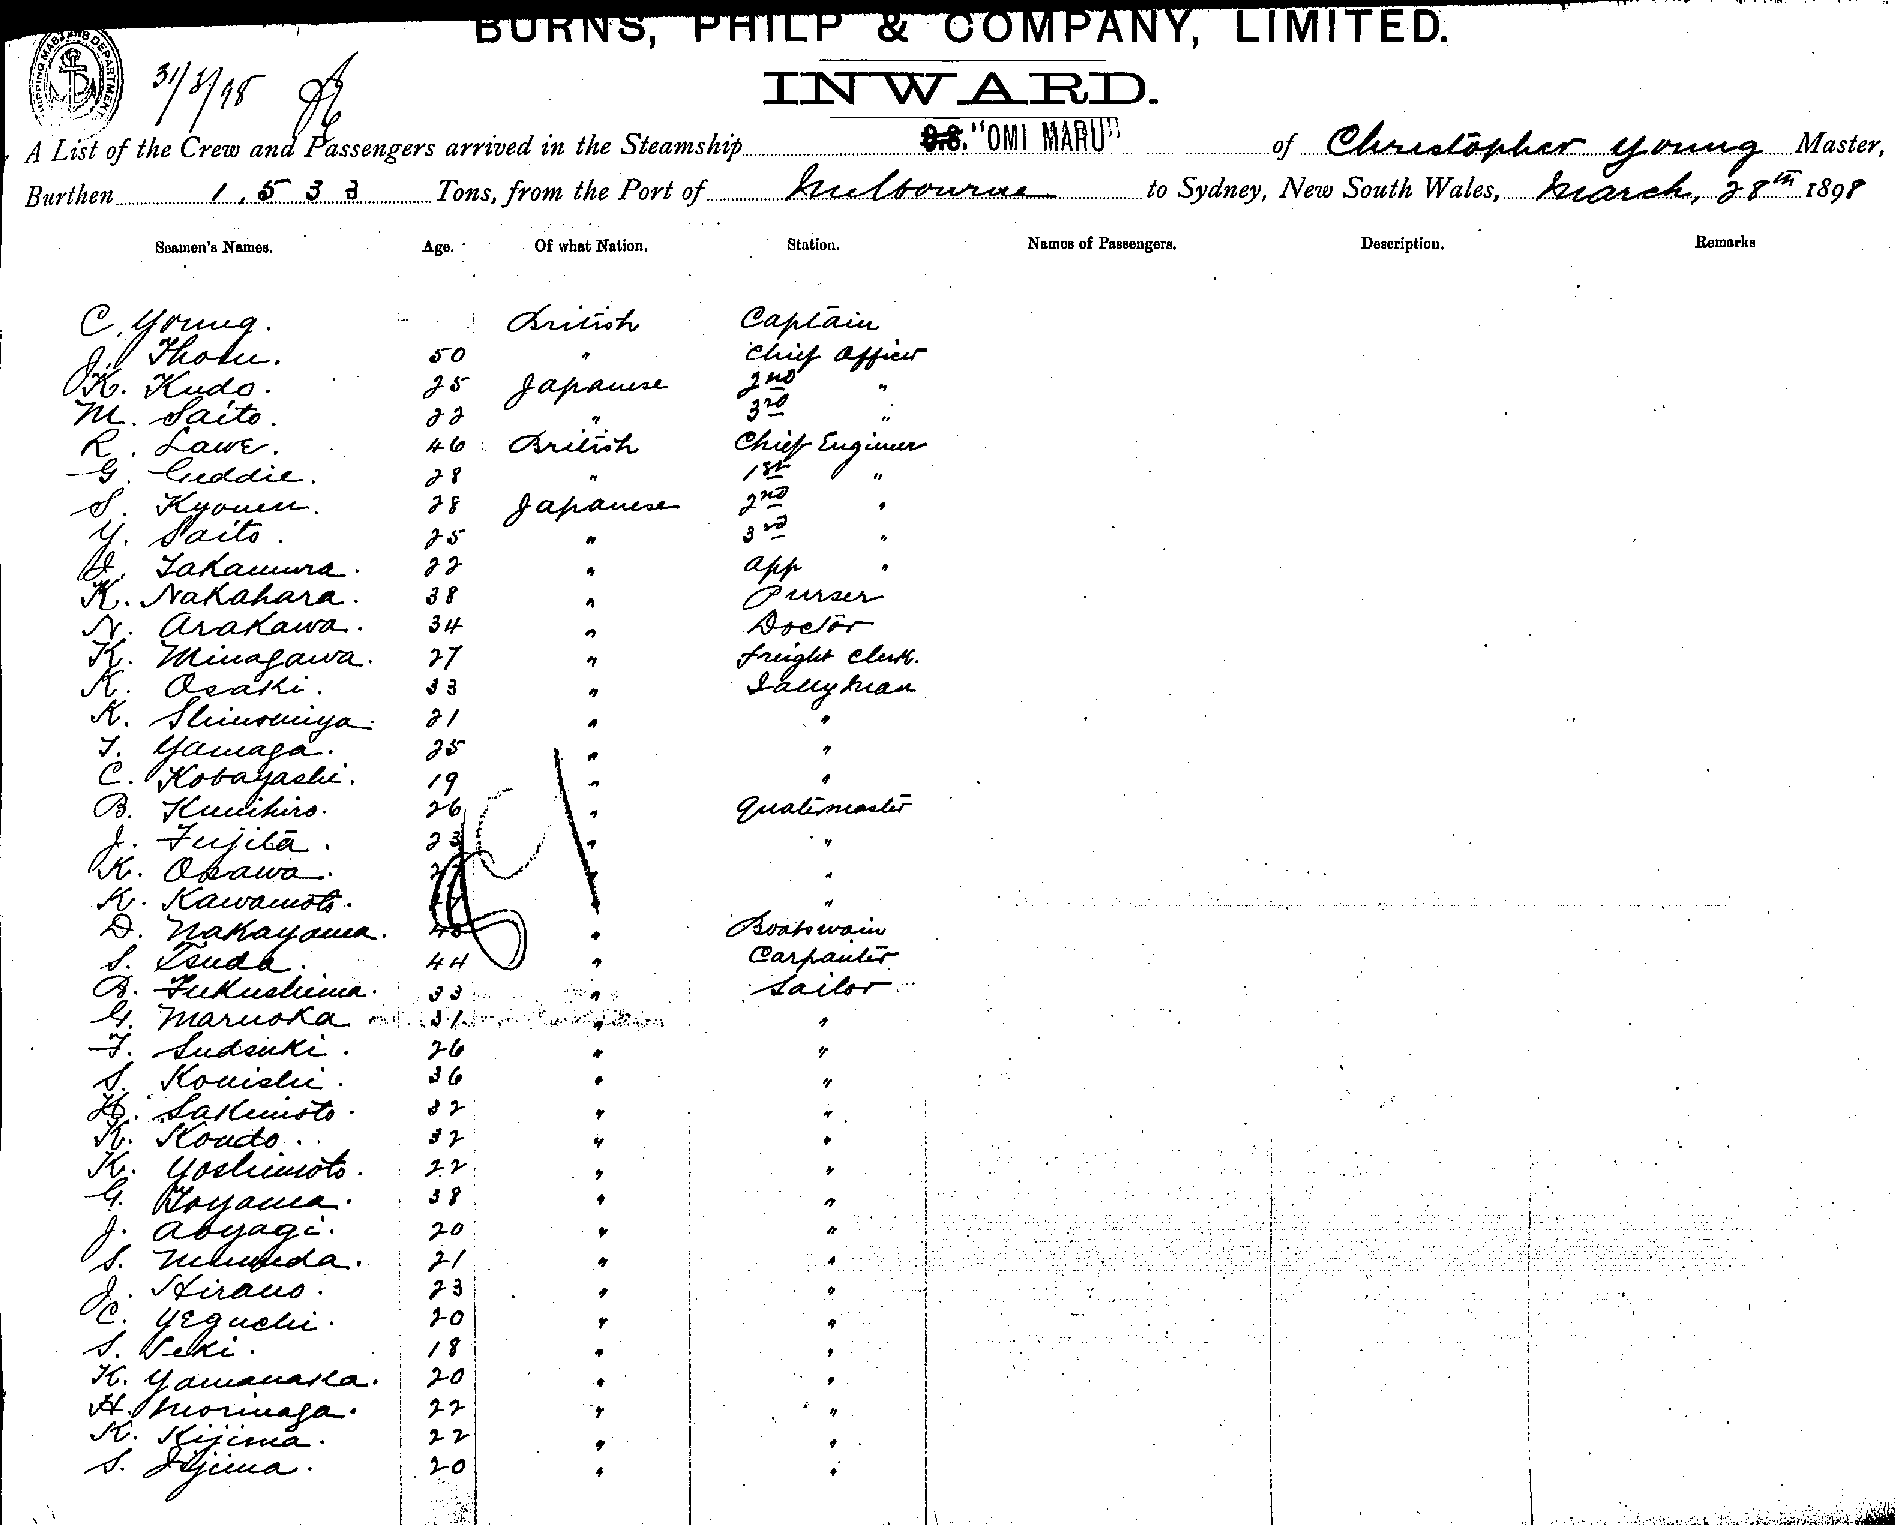 BURNS, PHILP & COMPANY, LIMITED.
INWARD.
31/3/98
A List of the Crew and Passengers arrived in the Steamship S.S. "OMI MARU" of Christopher Young Master,
Burthen 1,533 Tons, from the Port of Melbourne to Sydney, New South Wales, March, 28th 1898
Seamen's Names. Age. Of what Nation. Station. Names of Passengers. Description. Remarks
C. Young. British Captain
J. Thom. 50 " Chief Officer
K. Kudo. 25 Japanese 2nd "
M. Saito. 22 " 3rd "
R. Lawe. 46 British Chief Engineer
G. Geddie. 28 " 1st "
S. 28 Japanese 2nd "
Y. Saito. 25 " 3rd "
J. Takamura. 22 " App "
K. Nakahara. 38 " Purser
N. Arakawa. 34 " Doctor
K. Minagawa. 27 " Freight Clerk.
K. Osaki. 33 " Tallyman
K. Shinomiya. 21 " "
T. Yamaga. 25 " "
C. Kobayashi. 19 " "
B. Kunihiro. 26 " Quatermaster
J. Fujita. 23 " "
K. Osawa. " "
K. Kawamoto. " "
D. Nakayama. " Boatswain
S. Tsuda. 44 " Carpanter
B. Fukushima. 33 " Sailor
G. Maruoka 31 " "
T. Sudsuki. 26 " "
S. Konishi. 36 " "
H. Sakimoto. 32 " "
K. Kondo. 32 " "
K. Yoshimoto. 22 " "
G. Toyama. 38 " "
J. Aoyagi. 20 " "
S. 21 " "
J. Hirano. 23 " "
C. Yeguchi. 20 " "
S. Seki. 18 " "
K. Yamanaka. 20 " "
H. Morinaga. 22 " "
K. Kijima. 22 " "
S. Iijima. 20 " "